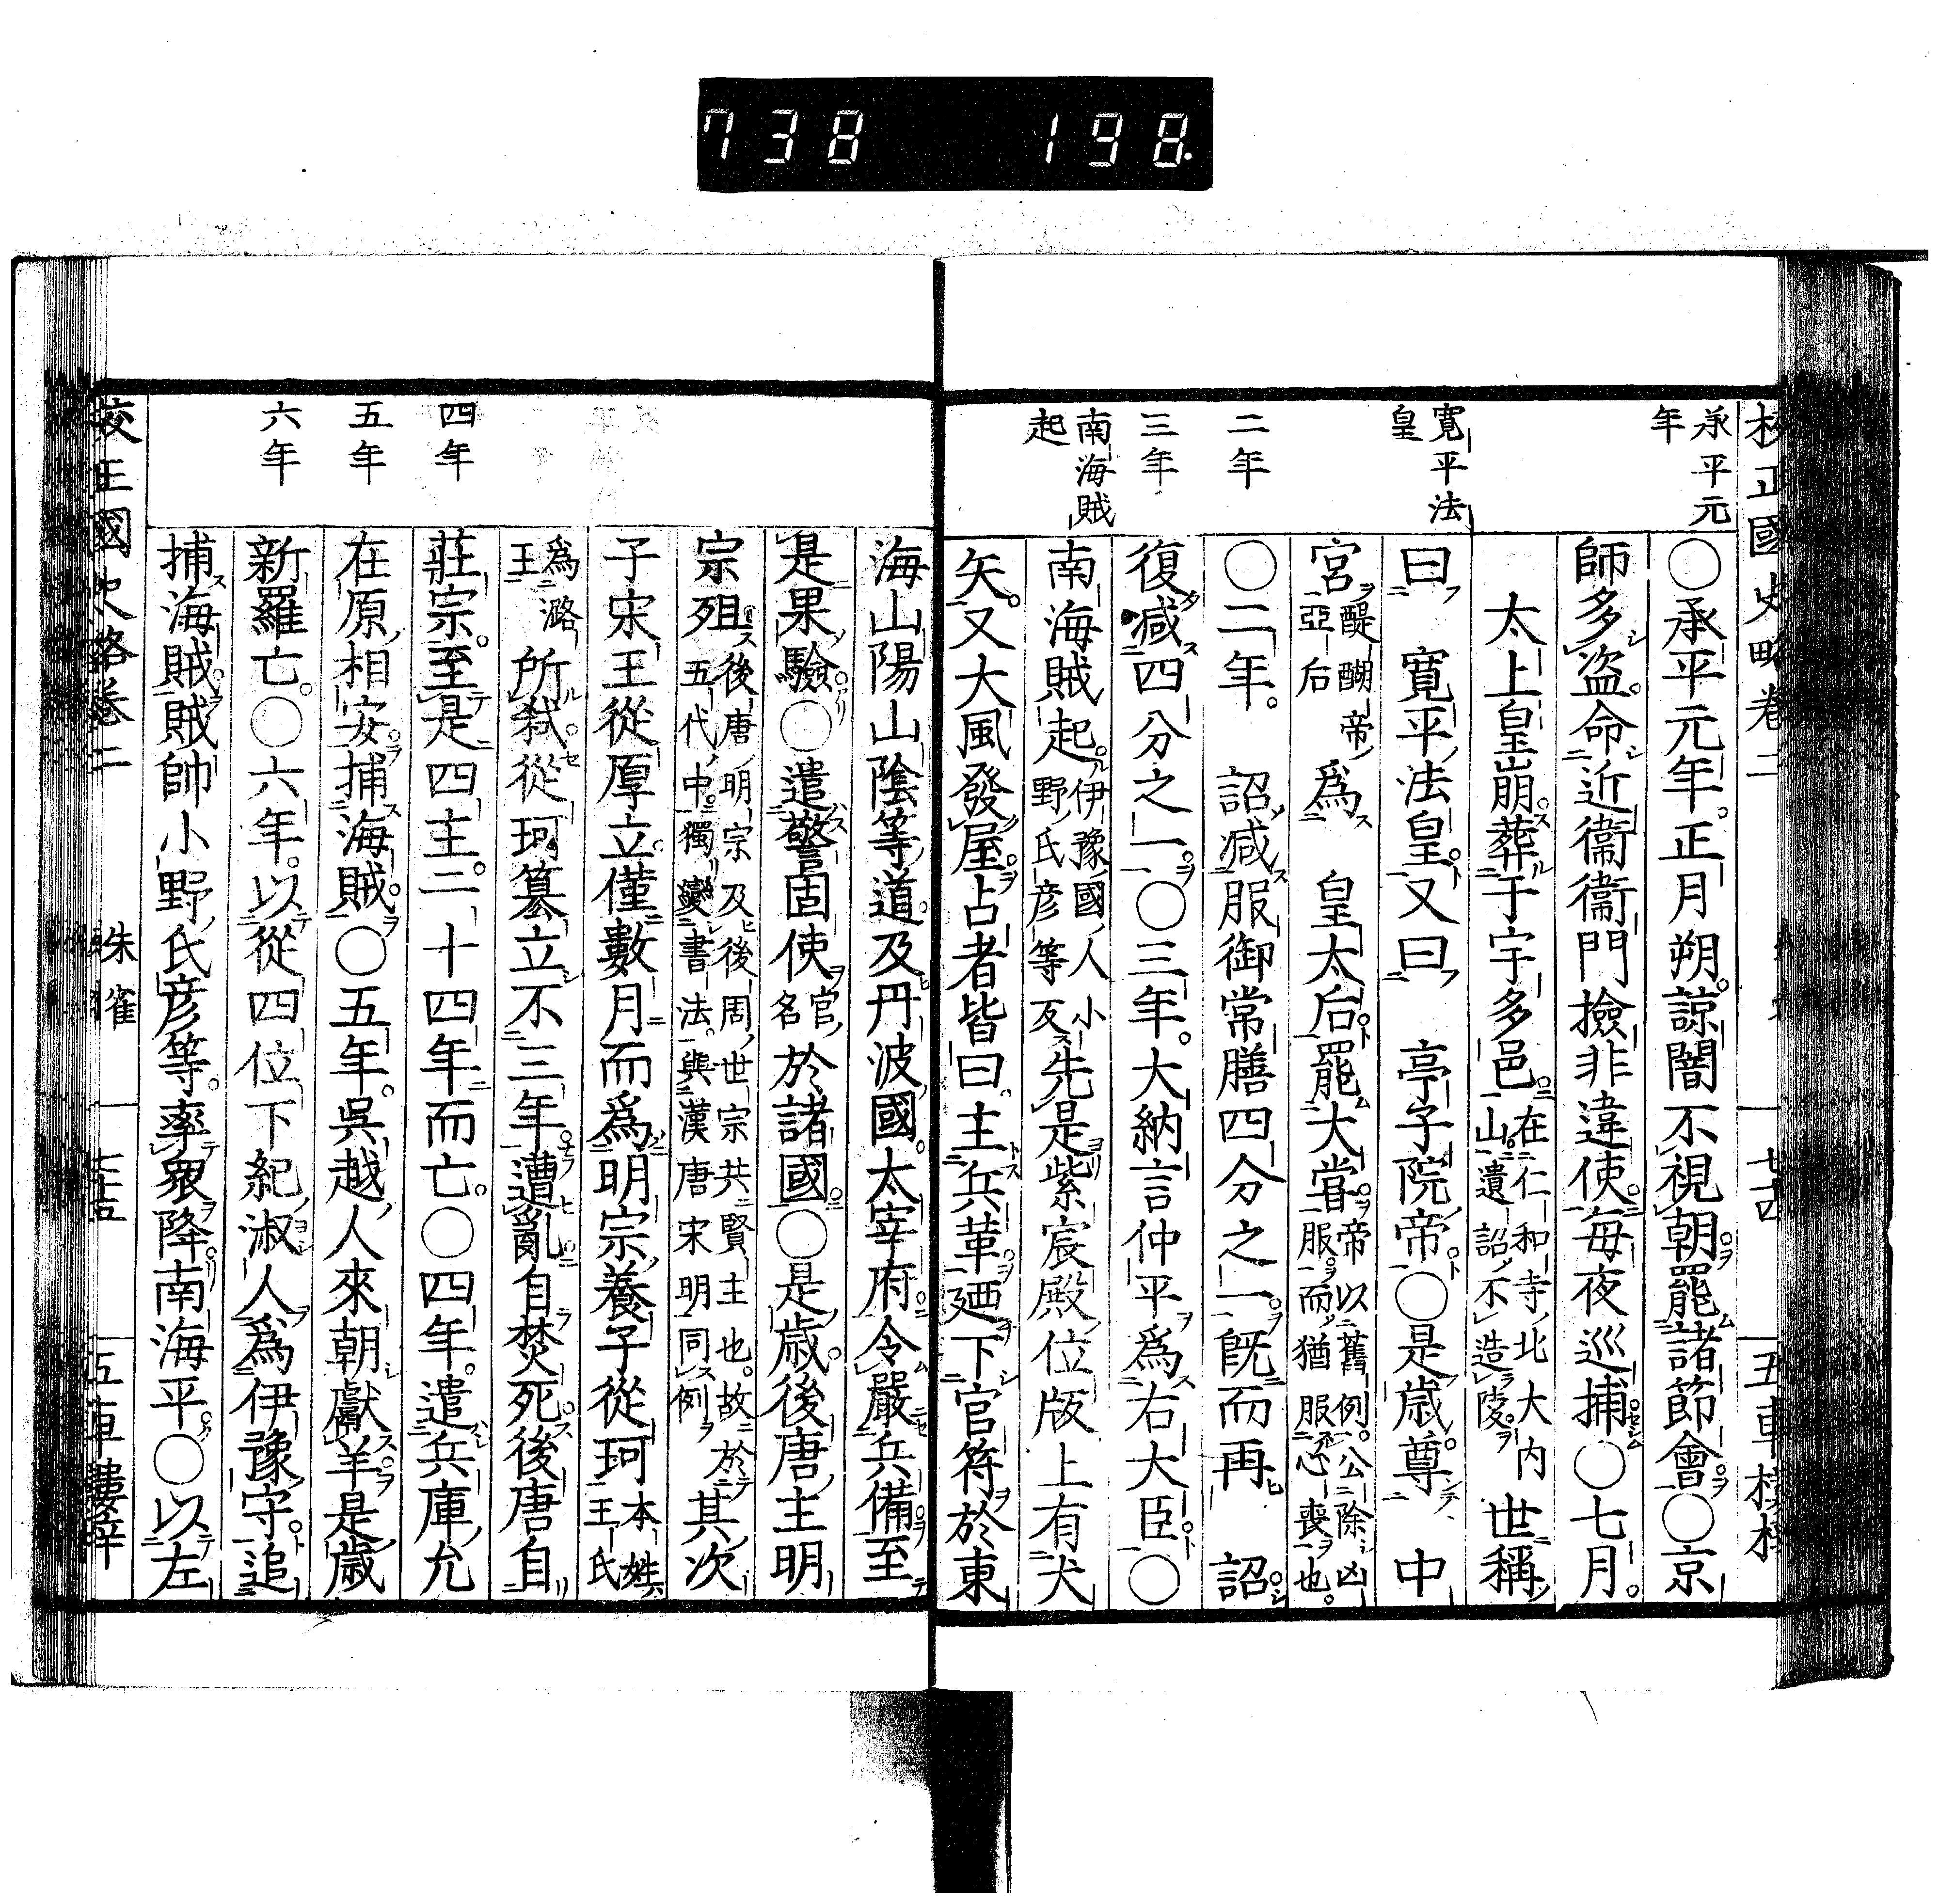 738 198.
校正國史略卷二
七十四
五車樓梓
承平元
年
寬平法
皇
二年
三年
南海賊
起
○承平元年。正月朔。諒闇不視朝。罷諸節會。○京
師多盜。命近衞衞門撿非違使。每夜巡捕。○七月。
太上皇崩。葬于宇多邑。在仁和寺北大内山。遺詔不造陵。世稱
曰寬平法皇。又曰亭子院帝。○是歲。尊中
宮醍醐帝亞后爲皇太后。罷大嘗。帝以舊例。公除凶服。而猶服心喪也。
○二年。詔減服御常膳四分之一。既而再詔。
復減四分之一。○三年。大納言仲平爲右大臣。○
南海賊起。伊豫國人小野氏彦等反先是紫宸殿位版上有犬
矢。又大風發屋。占者皆曰。主兵革。廼下官符於東
海山陽山陰等道。及丹波國。太宰府。令嚴兵備。至
是果驗。○遣警固使官名於諸國。○是歲。後唐主明
宗殂。後唐明宗及後周世宗共賢主也。故於五代中。獨變書法。與漢唐宋明同例其次
子宋王從厚立。僅數月而爲明宗養子從珂本姓王氏
爲潞王所弑。從珂簒立。不三年。遭亂自焚死。後唐自
莊宗。至是四主。二十四年而亡。○四年。遣兵庫允
在原相安。捕海賊。○五年。吳越人來朝獻羊。是歲
新羅亡。○六年。以從四位下紀淑人爲伊豫守。追
捕海賊。賊帥小野氏彦等。率眾降。南海平。○以左
四年
五年
六年
校正國史略卷二
朱雀
五車樓梓